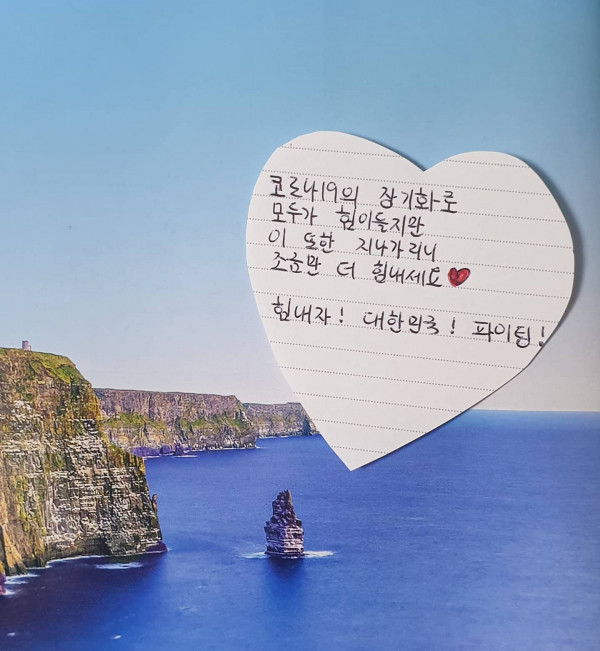 코로나19의 장기화로
모두가 힘이들지만
이 또한 지나가리니
조금만 더 힘내세요♥
힘내자! 대한민국! 파이팅!